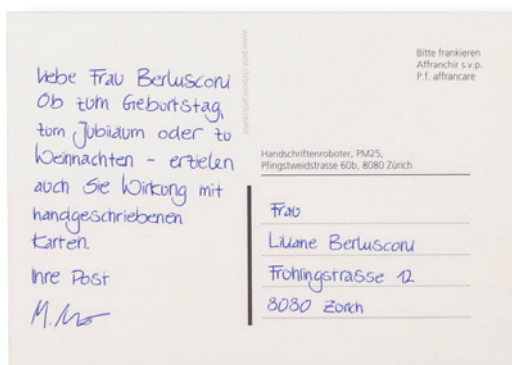 Liebe Frau Berlusconi
Ob zum Geburtstag,
zum Jubiläum oder zu
Weihnachten – erzielen
auch Sie Wirkung mit
handgeschriebenen
Karten.
Ihre Post
Bitte frankieren
Affranchir s.v.p.
P.f. affrancare
Handschriftenroboter, PM25,
Pfingstweidstrasse 60b, 8080 Zürich
Frau
Liliane Berlusconi
Frühlingstrasse 12
8080 Zürich